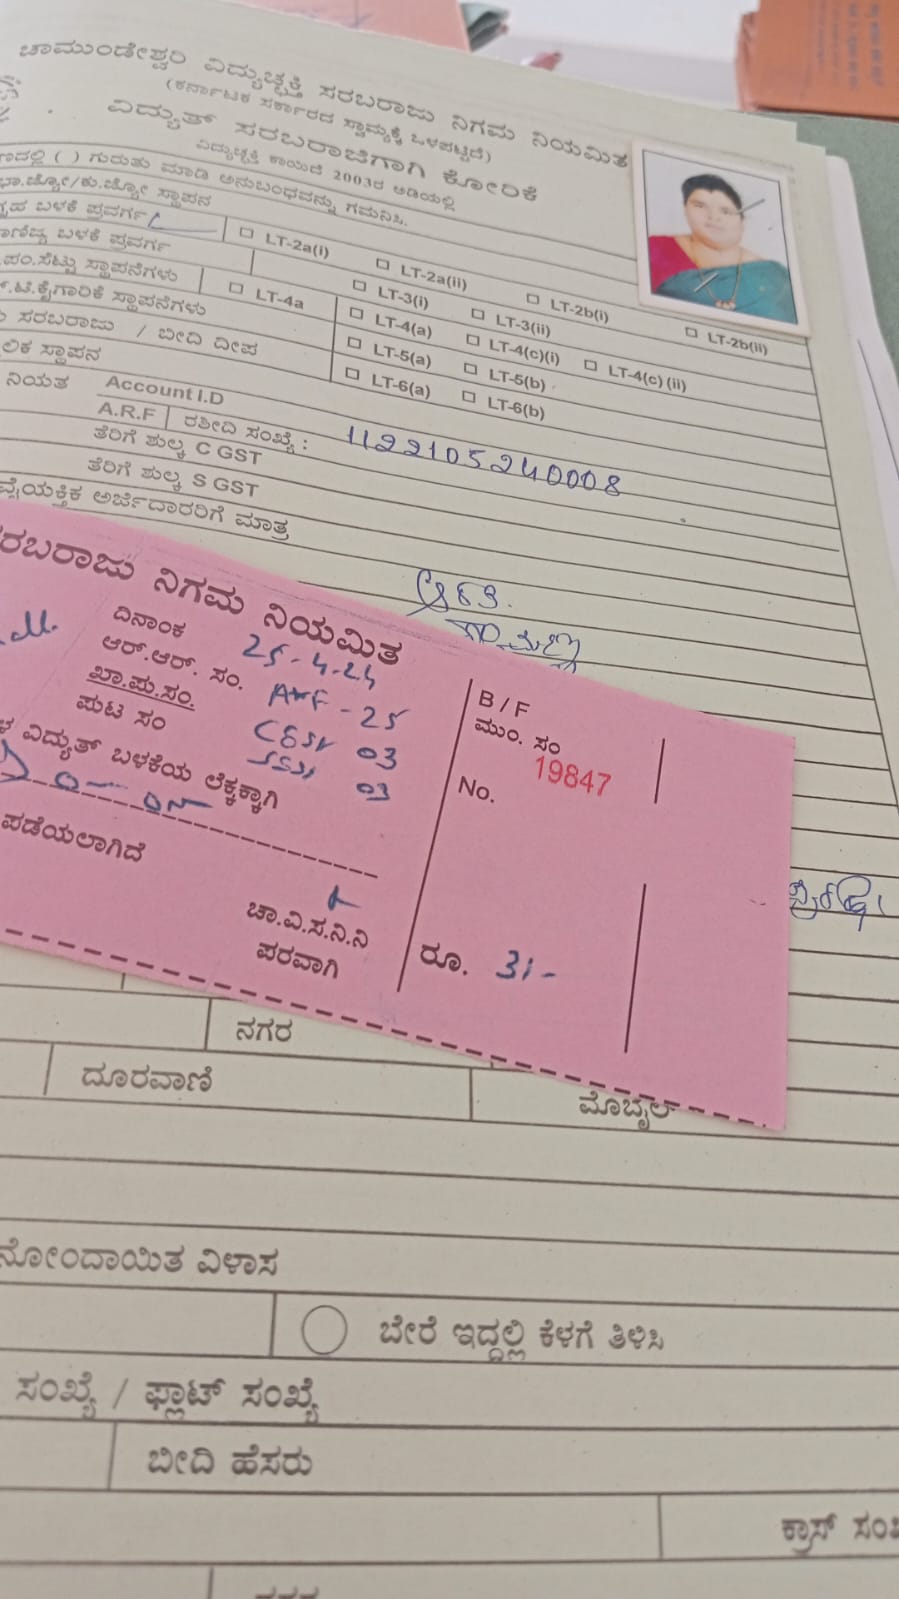 ಚಾಮುಂಡೇಶ್ವರಿ ವಿದ್ಯುಚ್ಛಕ್ತಿ ಸರಬರಾಜು ನಿಗಮ ನಿಯಮಿತ
(ಕರ್ನಾಟಕ ಸರ್ಕಾರದ ಸ್ವಾಮ್ಯಕ್ಕೆ ಒಳಪಟ್ಟಿದೆ)
ವಿದ್ಯುತ್ ಸರಬರಾಜಿಗಾಗಿ ಕೋರಿಕೆ
ವಿದ್ಯುಚ್ಛಕ್ತಿ ಕಾಯಿದೆ 2003ರ ಅಡಿಯಲ್ಲಿ
( ) ಗುರುತು ಮಾಡಿ ಅನುಬಂಧವನ್ನು ಗಮನಿಸಿ.
ಭಾ.ಜ್ಯೋ/ಕು.ಜ್ಯೋ ಸ್ಥಾಪನ
ಗೃಹ ಬಳಕೆ ಪ್ರವರ್ಗ LT-2a(i) LT-2a(ii) LT-2b(i) LT-2b(ii)
ಬಳಕೆ ಪ್ರವರ್ಗ LT-3(i) LT-3(ii)
ಪಂ.ಸೆಟ್ಟು ಸ್ಥಾಪನೆಗಳು LT-4a LT-4(a) LT-4(c)(i) LT-4(c) (ii)
ಕೈಗಾರಿಕೆ ಸ್ಥಾಪನೆಗಳು LT-5(a) LT-5(b)
ಸರಬರಾಜು / ಬೀದಿ ದೀಪ LT-6(a) LT-6(b)
ಸ್ಥಾಪನ
ನಿಯತ Account I.D
A.R.F ರಶೀದಿ ಸಂಖ್ಯೆ : 1122105240008
ತೆರಿಗೆ ಶುಲ್ಕ C GST
ತೆರಿಗೆ ಶುಲ್ಕ S GST
ವೈಯಕ್ತಿಕ ಅರ್ಜಿದಾರರಿಗೆ ಮಾತ್ರ
ಸರಬರಾಜು ನಿಗಮ ನಿಯಮಿತ
ದಿನಾಂಕ 25-4-24
ಆರ್.ಆರ್. ಸಂ. ARF - 25
ಖಾ.ಪು.ಸಂ. CGST 03
ಪುಟ ಸಂ SGST 03
ವಿದ್ಯುತ್ ಬಳಕೆಯ ಲೆಕ್ಕಕ್ಕಾಗಿ
ಪಡೆಯಲಾಗಿದೆ
ಚಾ.ವಿ.ಸ.ನಿ.ನಿ
ಪರವಾಗಿ
B / F
ಮುಂ. ಸಂ
19847
No.
ರೂ. 31-
ನಗರ
ದೂರವಾಣಿ ಮೊಬೈಲ್
ನೋಂದಾಯಿತ ವಿಳಾಸ
ಬೇರೆ ಇದ್ದಲ್ಲಿ ಕೆಳಗೆ ತಿಳಿಸಿ
ಸಂಖ್ಯೆ / ಫ್ಲಾಟ್ ಸಂಖ್ಯೆ
ಬೀದಿ ಹೆಸರು
ಕ್ರಾಸ್